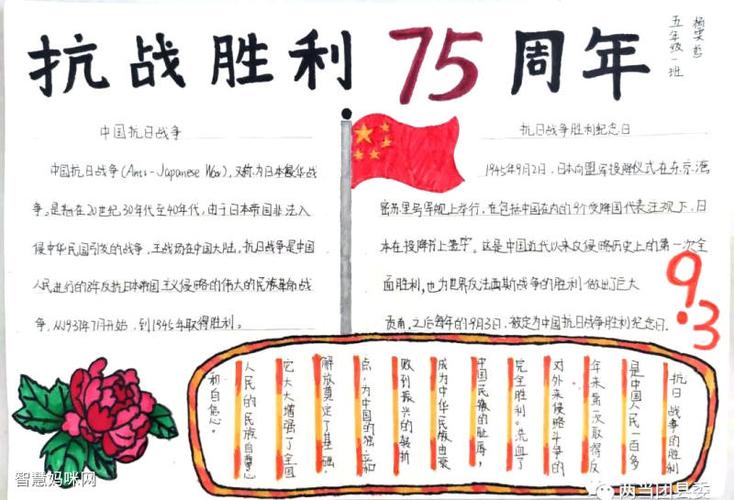 抗战胜利75周年
五年级一班
中国抗日战争
中国抗日战争(Anti-Japanese War),又称为日本侵华战
争。是指在20世纪,30年代至40年代,由于日本帝国非法入
侵中华民国引发的战争,主战场在中国大陆。抗日战争是中国
人民进行的8年反抗日本帝国主义侵略的伟大的民族革命战
争,从1937年7月开始,到1945年取得胜利。
抗日战争胜利纪念日
1945年9月2日,日本向盟军投降仪式在东京湾
密苏里号军舰上举行,在包括中国在内的9个受降国代表注视下,日
本在投降书上签字。这是中国近代以来反侵略历史上的第一次全
面胜利,也为世界反法西斯战争的胜利做出了巨大
贡献.之后每年的9月3日,被定为中国抗日战争胜利纪念日.
9.3
抗日战争的胜利
是中国人民一百多
年来第一次取得反
对外来侵略斗争的
完全胜利。洗血了
中国民族的耻辱,
成为中华民族由衰
败到振兴的转折
点,为中国的独立和
解放奠定了基础,
它大大增强了全国
人民的民族自尊心
和自信心。
智慧妈咪网
两当团县委